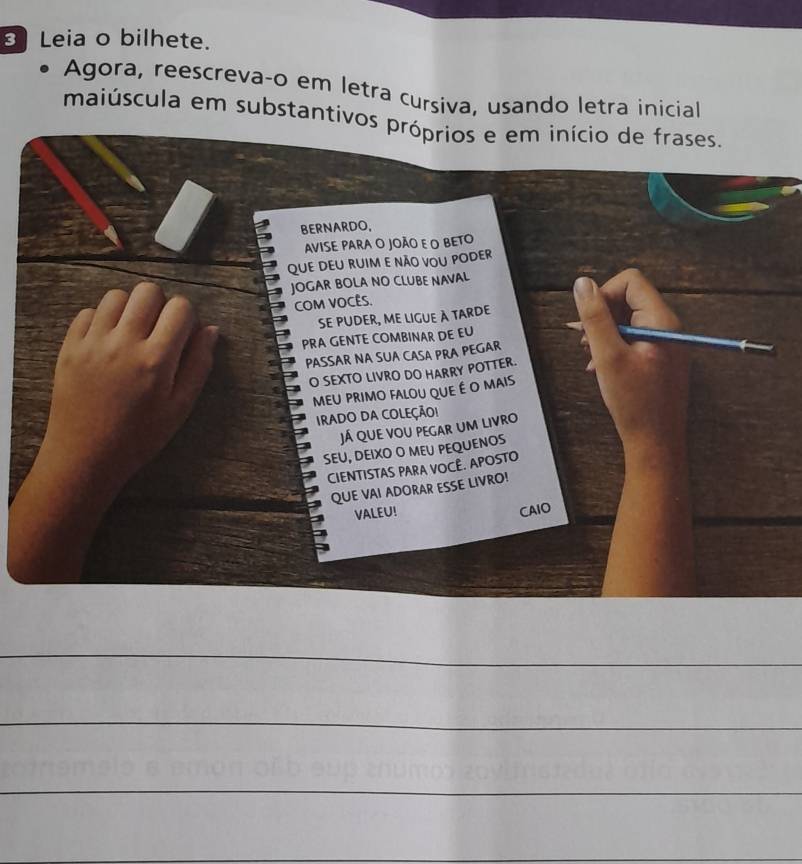 3 Leia o bilhete.
• Agora, reescreva-o em letra cursiva, usando letra inicial
maiúscula em substantivos próprios e em início de frases.
BERNARDO,
AVISE PARA O JOÃO E O BETO
QUE DEU RUIM E NÃO VOU PODER
JOGAR BOLA NO CLUBE NAVAL
COM VOCÊS.
SE PUDER, ME LIGUE À TARDE
PRA GENTE COMBINAR DE EU
PASSAR NA SUA CASA PRA PEGAR
O SEXTO LIVRO DO HARRY POTTER.
MEU PRIMO FALOU QUE É O MAIS
IRADO DA COLEÇÃO!
JÁ QUE VOU PEGAR UM LIVRO
SEU, DEIXO O MEU PEQUENOS
CIENTISTAS PARA VOCÊ. APOSTO
QUE VAI ADORAR ESSE LIVRO!
VALEU!
CAIO